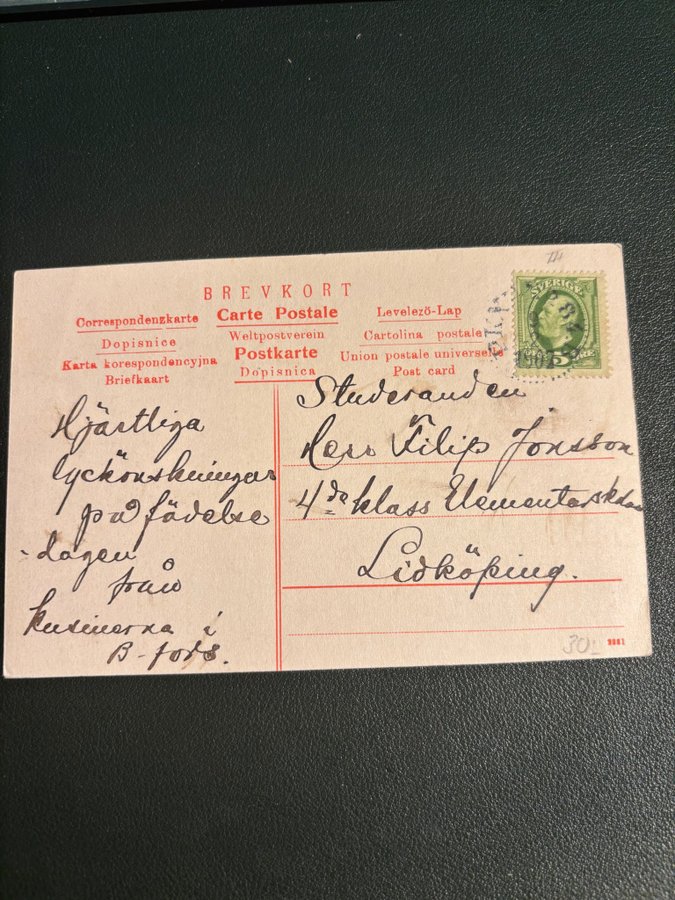 BREVKORT
Correspondenzkarte
Carte Postale
Levelező-Lap
Dopisnice
Weltpostverein
Cartolina postale
Karta korespondencyjna
Postkarte
Union postale universelle
Briefkaart
Dopisnica
Post card
SVERIGE
1907
5 ÖRE
Hjärtliga
lyckönskningar
på födelse
-dagen
från
kusinerna i
B-fors.
Studeranden
Herr Filip Jonsson
4de klass Elementarskolan
Lidköping.
30:-